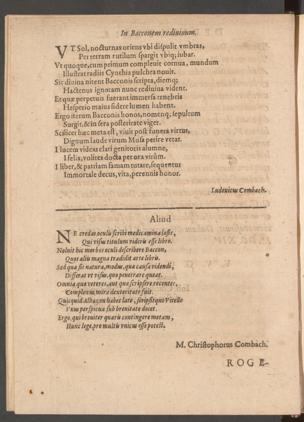 In Bacconem redivivum.
VT Sol, nocturnas oriens vbi dispulit vmbras,
Per terram rutilum spargit vbiq; iubar.
Vt quoque, cum primum complevit cornua, mundum
Illustrat radiis Cynthia pulchra novit.
Sic divina nitent Bacconis scripta, diemq;
Hactenus ignotam nunc rediviva vident.
Et quæ perpetuis fuerant immersa tenebris
Hesperio maius sidere lumen habent.
Ergo iterum Bacconis honos, nomenq; sepultum
Surgit, & in sera posteritate viget.
Scilicet hæc meta est, viuit post funera virtus,
Dignum laude virum Musa perire vetat.
I lucem videas clari genitoris alumne,
I felix, volites docta per ora virûm.
I liber, & patriam famam nutare, sequentur
Immortale decus, vita, perennis honor.
Ludovicus Combach.
Aliud
NE credas oculis scribi medicamina lusis,
Qui visu titulum videris esse libro.
Noluit hic morbos oculi describere Bacon,
Quos alii magna tradidit arte libris.
Sed quæ sit natura, modus, quæ causa videndi,
Disserat vt visus, quo penetrare queat.
Omnia quæ veteres, aut quæ scripsere recentes,
Complexus mira dexteritate fuit.
Quicquid Alhazen habet late, scripsitq; Vitello
Vnus perspicua sub brevitate docet.
Ergo, qui breviter quæris contingere metam,
Hunc lege, pro multis vnicus esse potest.
M. Christophorus Combach.
ROGE-